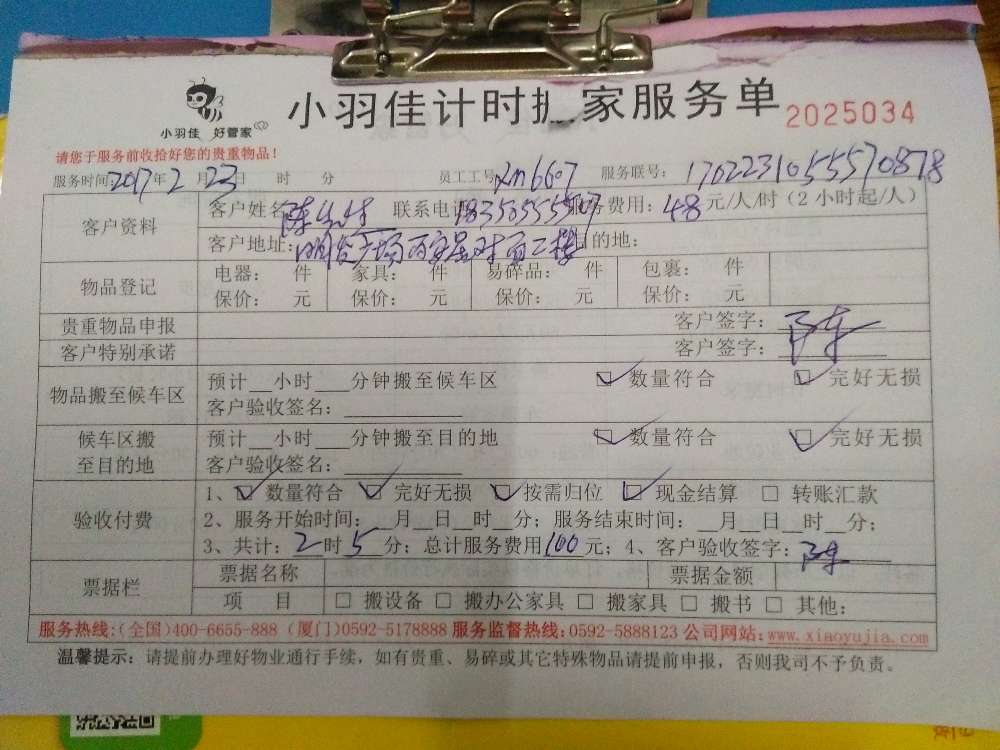 小羽佳 好管家
小羽佳计时搬家服务单 2025034
请您于服务前收拾好您的贵重物品！
服务时间2017年2月23日 时 分 员工工号xm6607 服务联号：1702231055570878
客户资料
客户姓名 陈先生 联系电话 服务费用：48元/人/时（2小时起/人）
客户地址：明发广场 对面二楼 目的地：
物品登记
电器： 件 家具： 件 易碎品： 件 包裹： 件
保价： 元 保价： 元 保价： 元 保价： 元
贵重物品申报 客户签字：陈
客户特别承诺 客户签字：
物品搬至候车区
预计__小时___分钟搬至候车区 ☑ 数量符合 ☑ 完好无损
客户验收签名：
候车区搬至目的地
预计__小时___分钟搬至目的地 ☑ 数量符合 ☑ 完好无损
客户验收签名：
验收付费
1、☑ 数量符合 ☑ 完好无损 ☑ 按需归位 ☑ 现金结算 □ 转账汇款
2、服务开始时间：__月__日__时__分；服务结束时间：__月__日__时__分；
3、共计：2时5分；总计服务费用100元；4、客户验收签字：陈
票据栏
票据名称 票据金额
项 目 □ 搬设备 □ 搬办公家具 □ 搬家具 □ 搬书 □ 其他：
服务热线：(全国)400-6655-888 (厦门)0592-5178888 服务监督热线：0592-5888123 公司网站：www.xiaoyujia.com
温馨提示：请提前办理好物业通行手续，如有贵重、易碎或其它特殊物品请提前申报，否则我司不予负责。